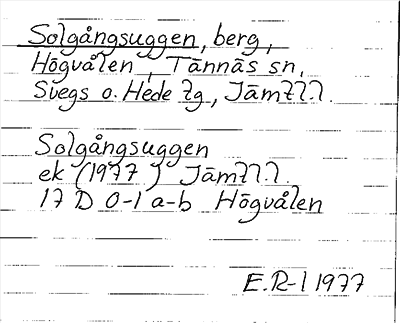 Solgångsuggen, berg,
Högvålen, Tännäs sn,
Svegs o. Hede tg, Jämtl.l.
Solgångsuggen
ek (1977) Jämtl.l.
17 D 0-1 a-b Högvålen
E.R-l 1977